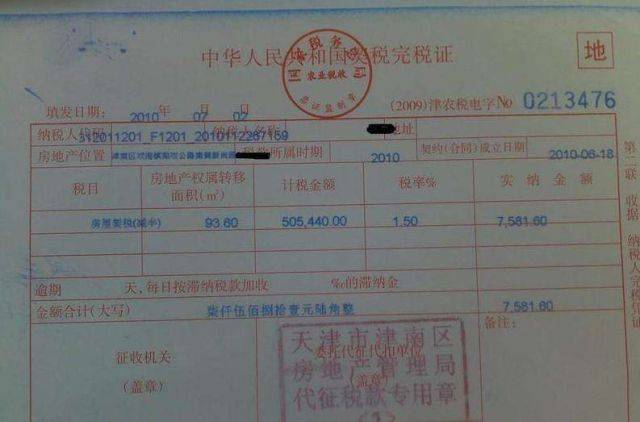 中华人民共和国契税完税证
地
国家税务总局
农业税收
票证监制章
填发日期: 2010 年 07 月 02
(2009)津农税电字№ 0213476
纳税人代码 312011201_F1201_2010112287159 纳税人名称 地址
房地产位置 税款所属时期 2010 契约(合同)成立日期 2010-06-18
税目 房地产权属转移面积(㎡) 计税金额 税率% 实纳金额
房屋契税(减半) 93.60 505,440.00 1.50 7,581.60
逾期 天,每日按滞纳税款加收 ‰的滞纳金
金额合计(大写) 柒仟伍佰捌拾壹元陆角整 7,581.60
征收机关
(盖章)
委托代征代扣单位
(盖章)
备注:
天津市津南区
房地产管理局
代征税款专用章
第二联 收据 纳税人完税凭证